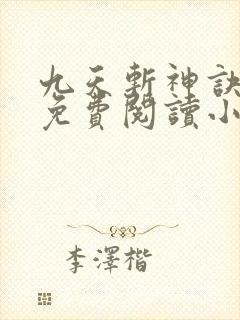 九天斬神訣
免費閱讀小
李澤楷